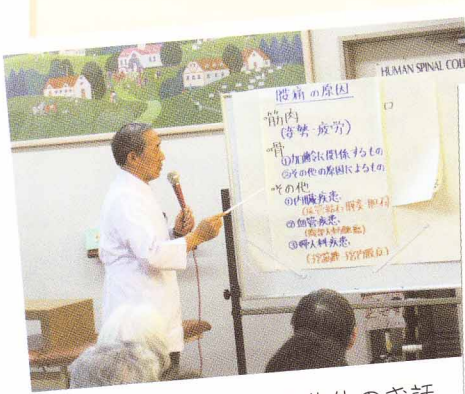 HUMAN SPINAL COL
腰痛の原因
・筋肉
(姿勢・疲労)
・骨
①加齢に関係するもの
②その他の原因によるもの
・その他
①内臓疾患
②血管疾患
③婦人科疾患
のお話